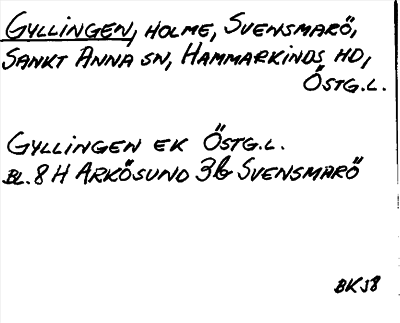 GYLLINGEN, HOLME, SVENSMARÖ,
SANKT ANNA SN, HAMMARKINDS HD,
ÖSTG.L.
GYLLINGEN EK ÖSTG.L.
BL. 8 H ARKÖSUND 3b SVENSMARÖ